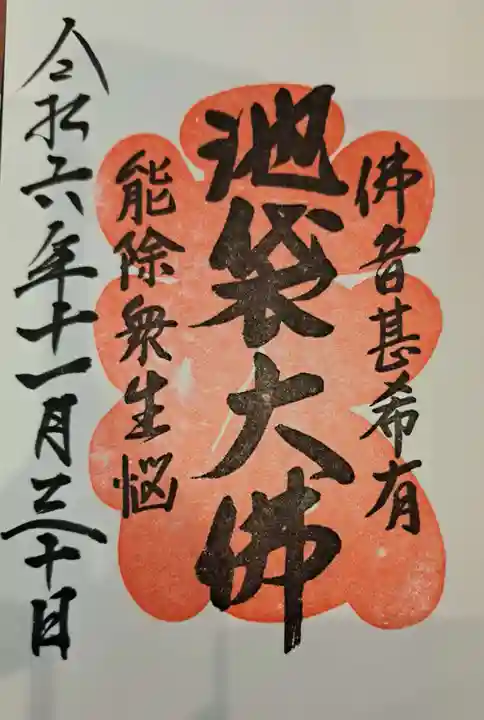 佛音甚希有
池袋大佛
能除衆生惱
令和六年十一月三十日